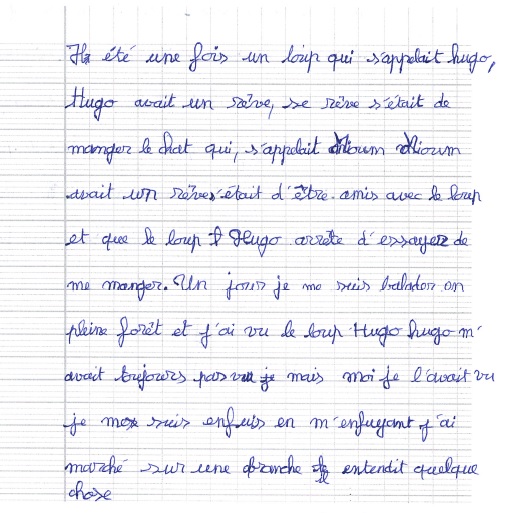 Ila été une fois un loup qui s'appelait hugo,
Hugo avait un rêve, se rêve s'était de
manger le chat qui, s'appelait Mioum Mioum
avait un rêve s'était d'être amis avec le loup
et que le loup Hugo arrête d'essayer de
me manger. Un jour je me suis balader en
pleine forêt et j'ai vu le loup Hugo hugo m'
avait toujours pas vu je mais moi je l'avait vu
je me suis enfuis en m'enfuyant j'ai
marché sur une branche entendit quelque
chose